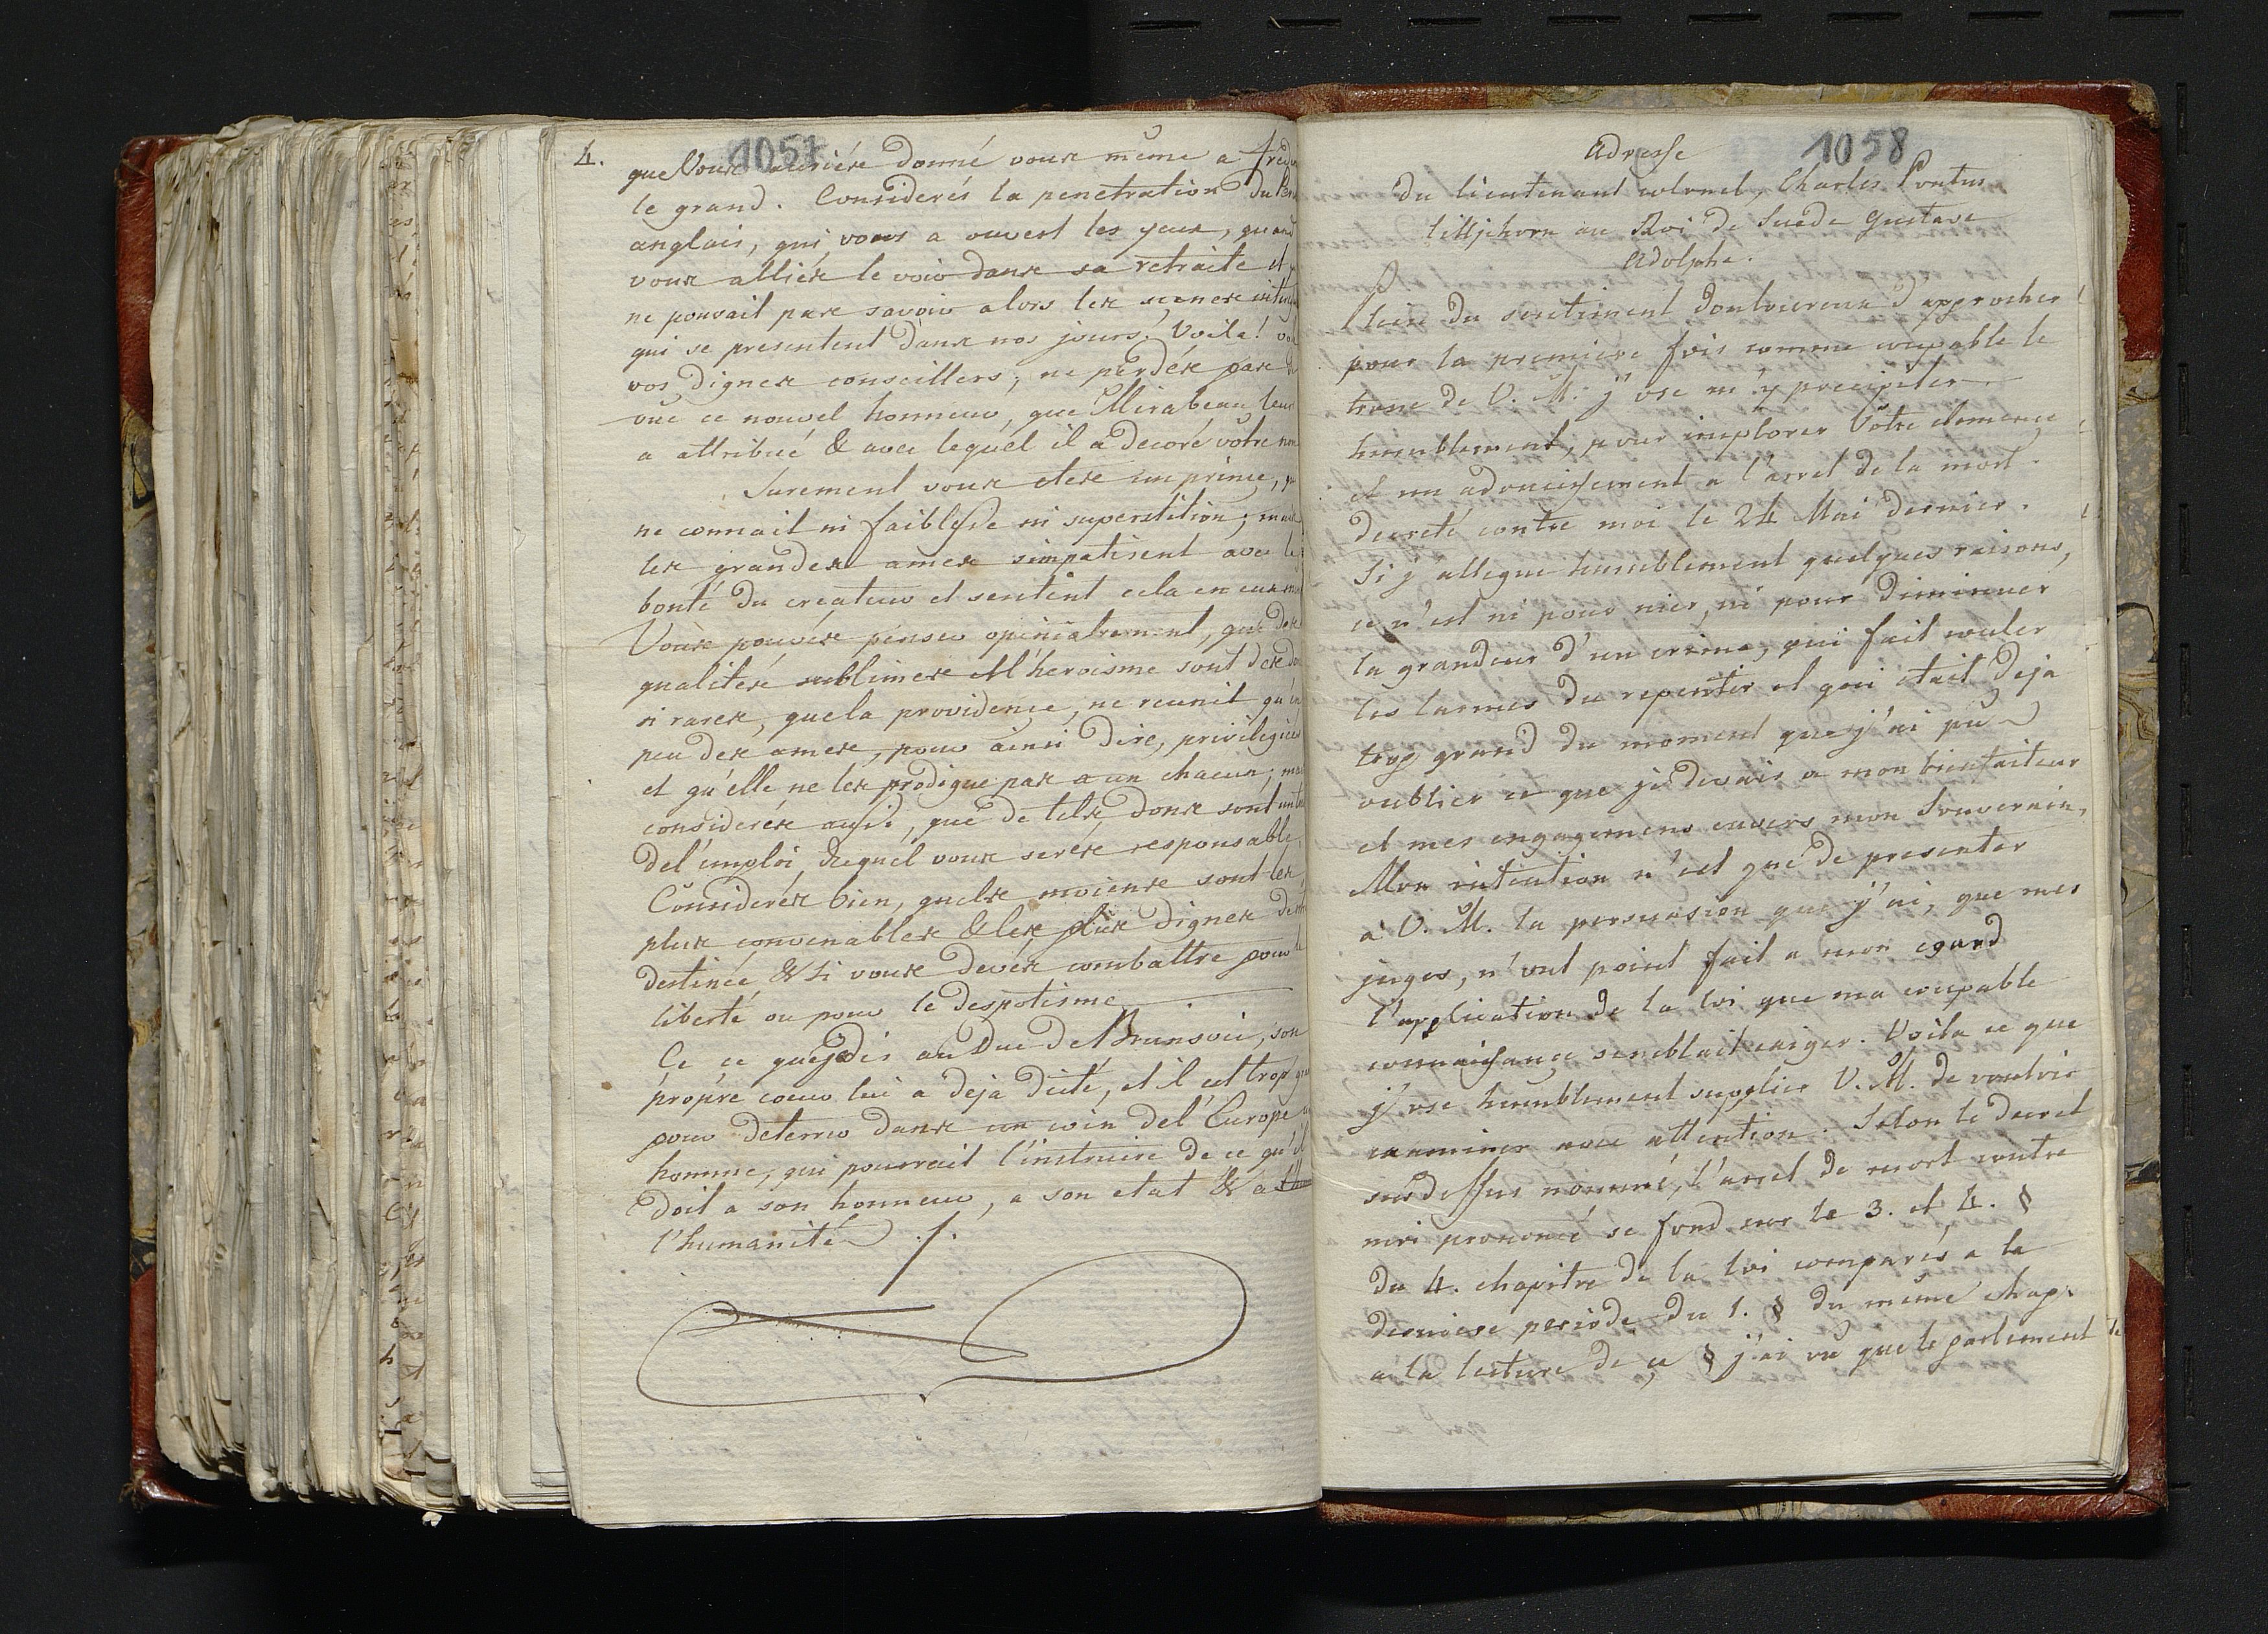 4.
1057
que Vous auriés donné vous même a Fred
le grand. Considerés la penetration du
anglais, qui vous a ouvert les yeux, quand
vous alliés le voir dans sa retraite et
ne pouvait pas savoir alors les scenes
qui se presentent dans nos jours! Voila!
vos dignes conseillers; ne perdés pas de
vue ce nouvel honneur, que Mirabeau leur
a attribué & avec lequel il a decoré votre nom
Surement vous etes un prince,
ne connait ni faiblesse ni superstition; mais
les grandes ames simpatisent avec la
bonté du createur et sentent cela en eux
Vous pouvés penser opiniatrement, que des
qualités sublimes et l'heroisme sont des
si rares, que la providence, ne reunit qu'en
peu des ames, pour ainsi dire, privilegiées
et qu'elle ne les prodigue pas a un chacun; mais
considerés aussi, que de tels dons sont
de l'emploi duquel vous serés responsable
Considerés bien, quels moiens sont les
plus convenables & les plus dignes de
destinée & si vous devés combattre pour la
liberté ou pour le despotisme.
Ce ce que je dis au Duc de Brunsvic, son
propre coeur lui a deja dicté, et il est trop
pour deterrer dans un coin de l'Europe
homme, qui pourrait l'instruire de ce qu'il
doit a son honneur, a son etat & a
l'humanité
1058
Adresse
du lieutenant colonel, Charles Pontus
lilljehorn au Roi de Suede Gustave
Adolphe.
Plein du sentiment douloureux d'approcher
pour la premiere fois comme coupable le
trone de V. M. j'ose m'y precipiter
humblement, pour implorer Votre clemence
et un adoucissement a l'arret de la mort
decreté contre moi le 24 Mai dernier.
Si j'allegue humblement quelques raisons,
ce n'est ni pour nier, ni pour diminuer
la grandeur d'un crime, qui fait couler
les larmes du repentir et qui etait deja
trop grand du moment que j'ai pu
oublier ce que je devais a mon bienfaiteur
et mes engagemens envers mon Souverain,
Mon intention n'est que de presenter
a V. M. la persuasion que j'ai, que mes
juges, n'ont point fait a mon egard
l'application de la loi que ma coupable
connaissance semblait exiger. Voila ce que
j'ose humblement supplier V. M. de vouloir
examiner avec attention. Selon le decret
susdessus nommé, l'arret de mort contre
moi prononcé se fond sur le 3. et 4. §
du 4. chapitre de la loi comparés a la
derniere periode du 1. § du meme chap.
a la lecture de ce § j'ai vu que le parlement